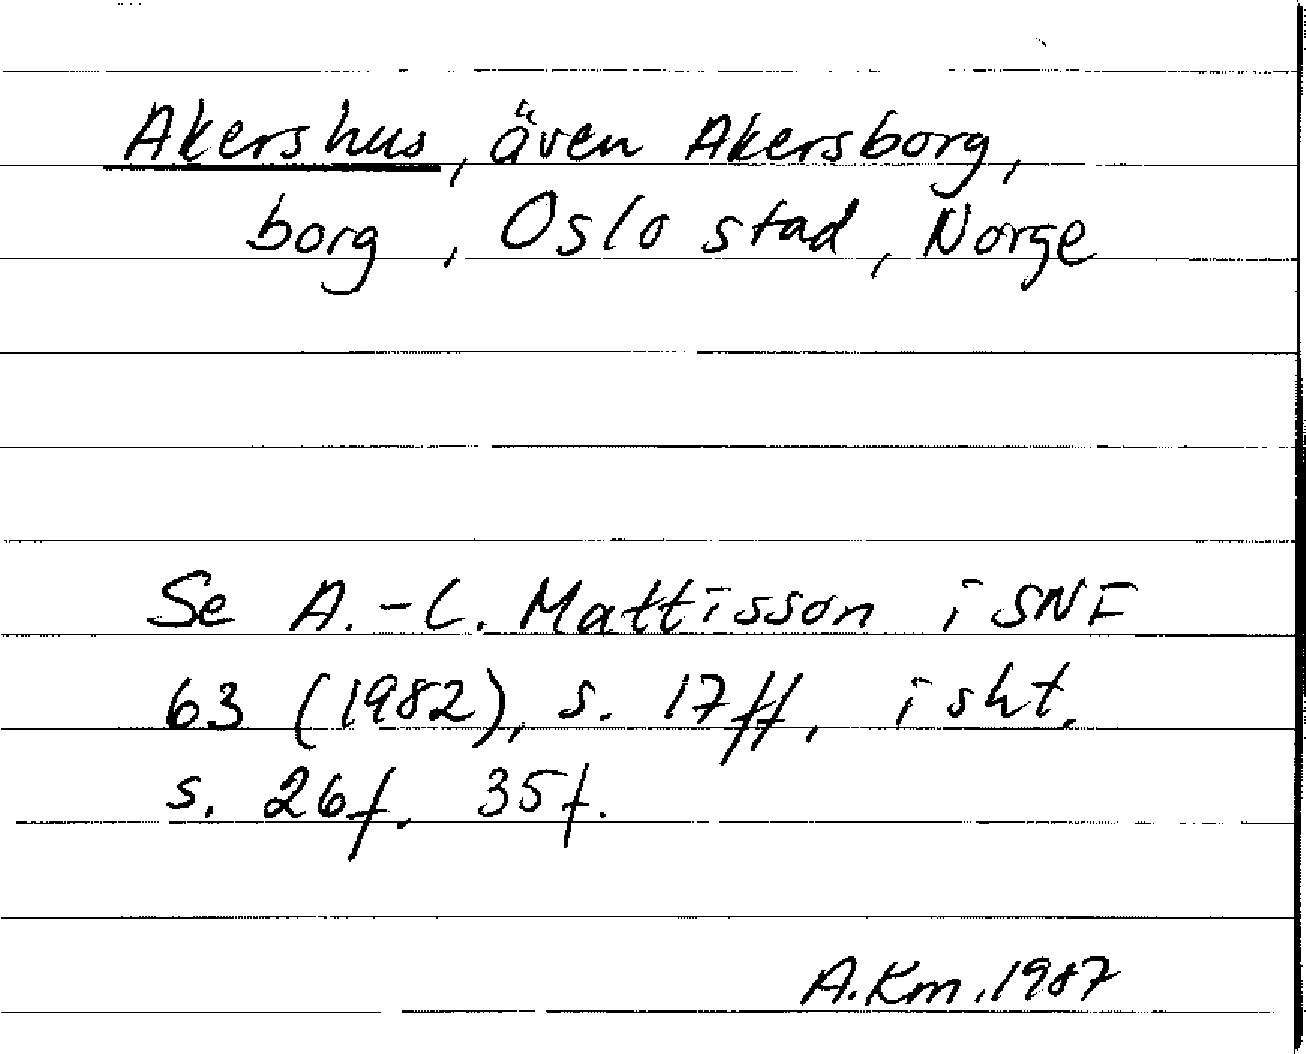 Akershus, även Akersborg,
borg, Oslo stad, Norge
Se A.-C. Mattisson i SNF
63 (1982), s. 17 ff, i sht.
s. 26 f. 35 f.
A.Km. 1987